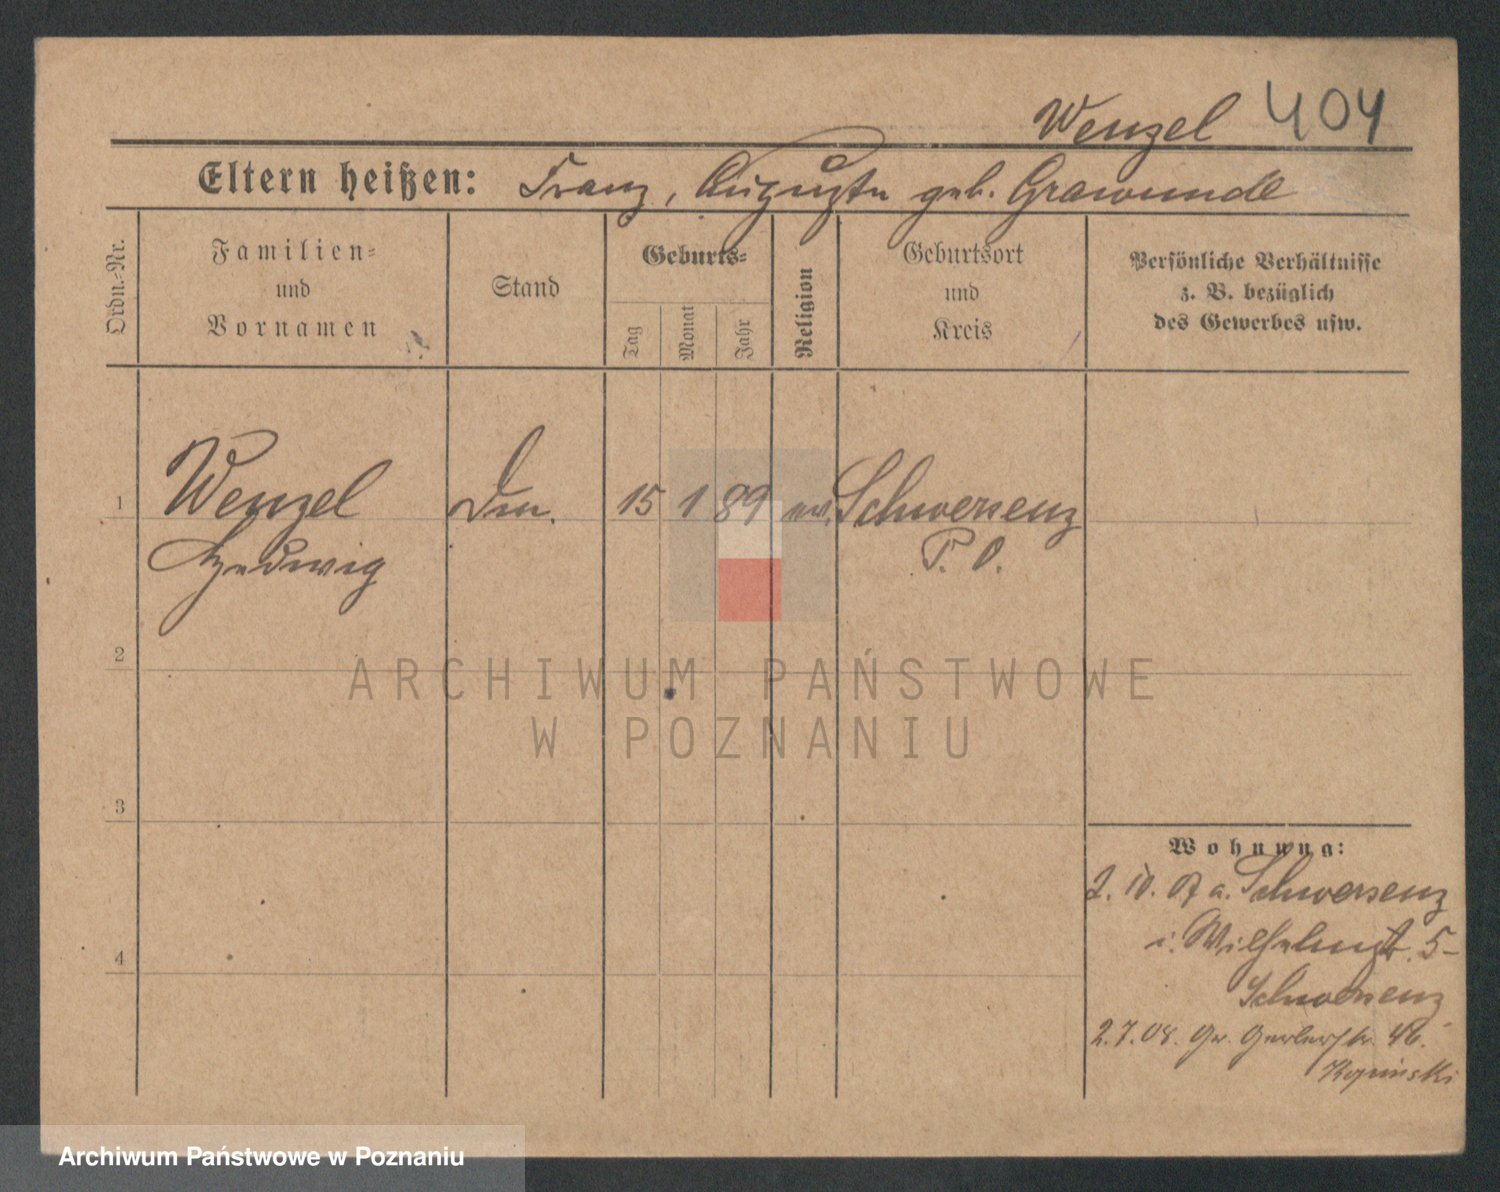 Wenzel 404
Eltern heißen: Franz, Auguste geb. Grawunde
Ordn.-Nr.
Familien-
und
Vornamen
Stand
Geburts-
Tag
Monat
Jahr
Religion
Geburtsort
und
Kreis
Persönliche Verhältnisse
z. B. bezüglich
des Gewerbes usw.
1 Wenzel 15 1 89 ev. Schwersenz
Hedwig P. O.
2
3
4
Wohnung:
2. 10. 07 a. Schwersenz
i. Wilhelmstr. 5-
Schwersenz
2.7.08. Gr. Gerberstr. 46.
ARCHIWUM PAŃSTWOWE
W POZNANIU
Archiwum Państwowe w Poznaniu